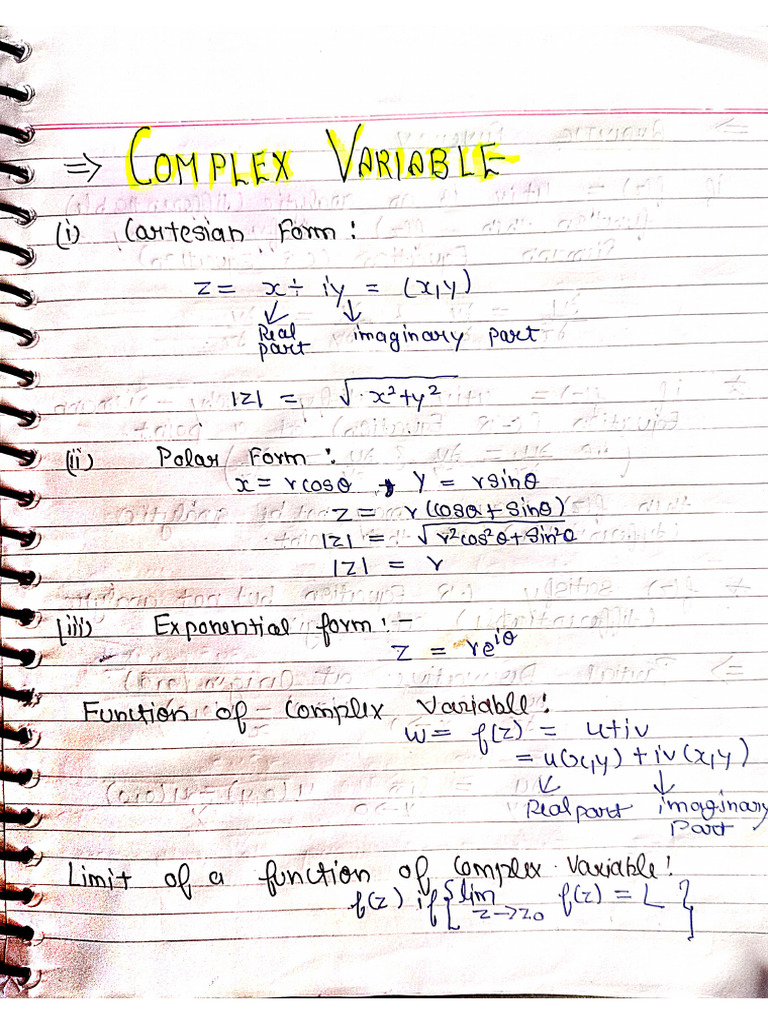 ⇒ COMPLEX VARIABLE
(i) Cartesian Form :
z = x ÷ iy = (x,y)
Real part imaginary part
|z| = √x²+y²
(ii) Polar Form :
x = rcosθ , y = rsinθ
z = r(cosθ + sinθ)
|z| = √r²cos²θ + sin²θ
|z| = r
(iii) Exponential form :-
z = re^iθ
Function of complex variable :
w = f(z) = u+iv
= u(x,y) + iv(x,y)
Real part imaginary Part
Limit of a function of complex variable :
f(z) if { lim z→z0 f(z) = L }